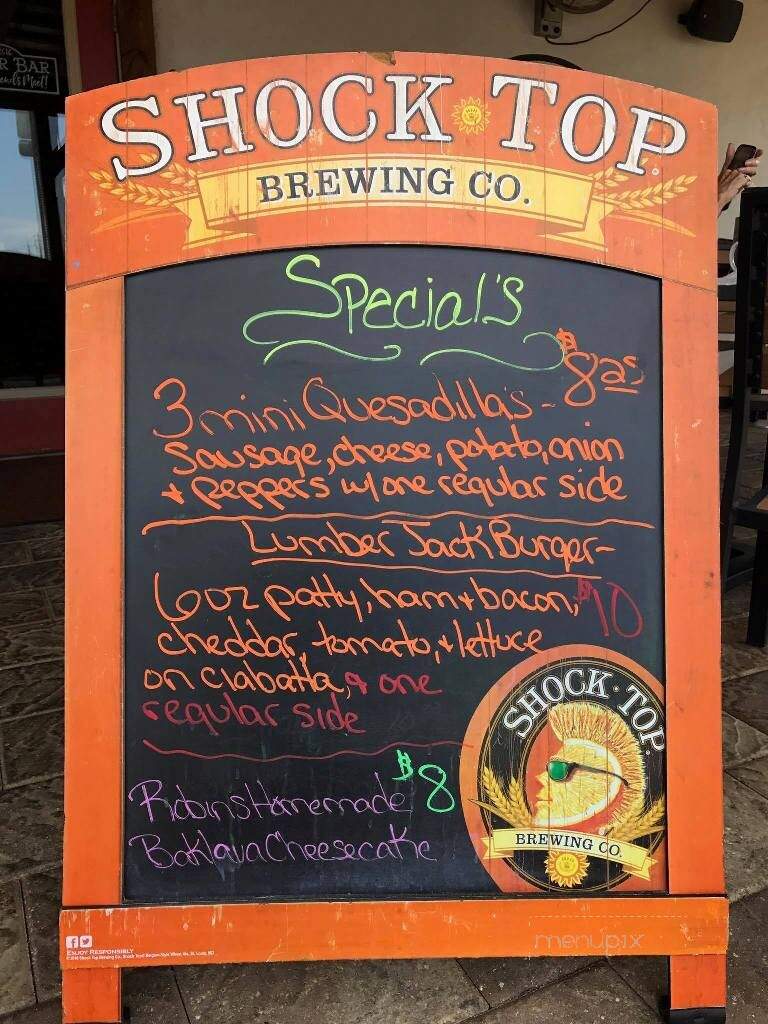 R BAR
SHOCK TOP
BREWING CO.
Special's
3 mini Quesadilla's - $8.25
Sausage, cheese, potato, onion
+ peppers w/ one regular side
Lumber Jack Burger -
6oz patty, ham + bacon, $10
cheddar, tomato, + lettuce
on ciabatta, + one
regular side
Robins Homemade $8
Baklava Cheesecake
SHOCK TOP
BREWING CO.
ENJOY RESPONSIBLY
menupix